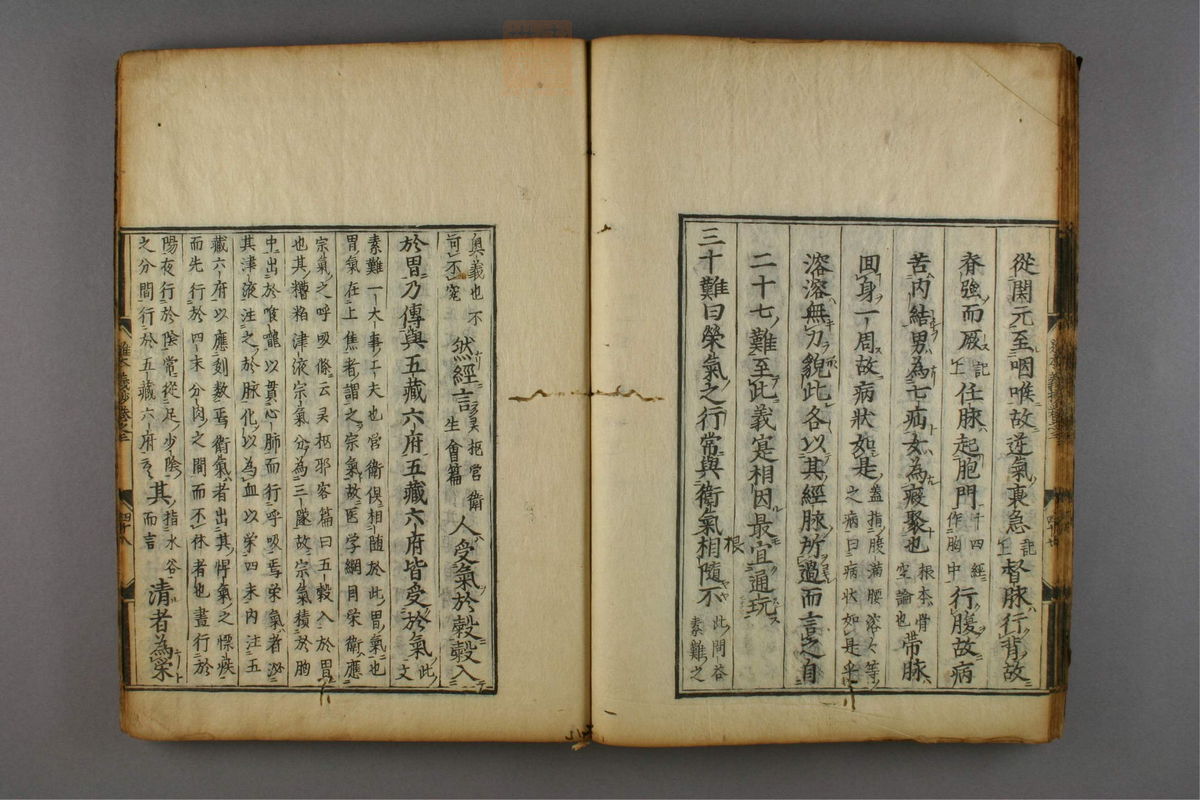 從関元至咽喉故逆氣裏急註上督脉行背故
脊強而厥註上任脉起胞門十四經作胸中行腹故病
苦内結男為七疝女為瘕聚也根本骨空論也帶脉
回身一周故病狀如是蓋指腹滿腰溶々等之病曰病狀如是乎
溶溶無力貌此各以其經脉所過而言之自
二十七難至此義寔相因最宜通玩
三十難曰榮氣之行常與衛氣相隨不根此問答素難之
奥義也不可不究然經言灵枢営衛生會篇人受氣於穀穀入
於胃乃傳與五藏六府五藏六府皆受於氣此文
素難一大事工夫也営衛俱相随於此胃氣也
胃氣在上焦者謂之宗氣故医学綱目栄衛應
宗氣之呼吸條云灵枢邪客篇曰五穀入於胃
也其糟粕津液宗氣分為三隧故宗氣積於胸
中出於喉嚨以貫心肺而行呼吸焉栄氣者泌
其津液注之於脉化以為血以栄四末内注五
藏六府以應刻数焉衛氣者出其悍氣之慓疾
而先行於四末分肉之間而不休者也晝行於
陽夜行於陰常從足少陰
之分間行於五藏六府云々其指水谷而言清者為栄